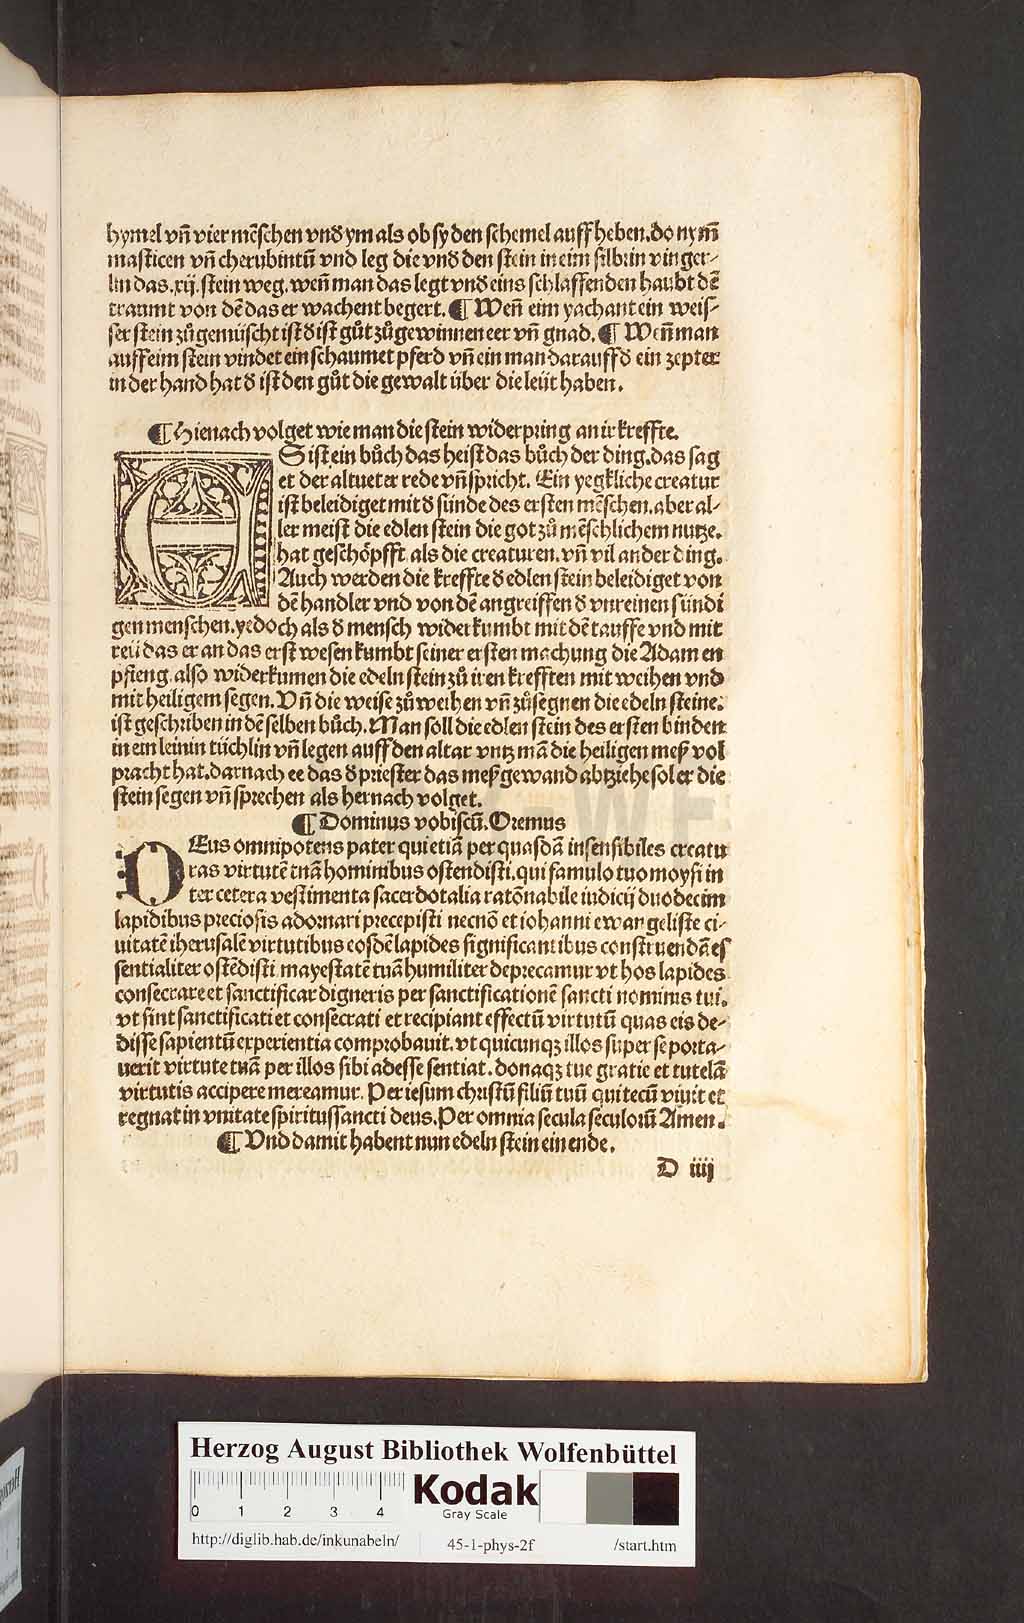 hymel vn̄ vier mēschen vnd ym als ob sy den schemel auff heben. do nym̄
masticen vn̄ cherubintū vnd leg die vnd den stein in eim silbrin vinger-
lin das .xij. stein weg. wen̄ man das legt vnd eins schlaffenden haubt dē
traumt von dē das er wachent begert. ¶ Wen̄ eim yachant ein weis-
ser stein zůgemüscht ist d ist gůt zů gewinnen eer vn̄ gnad. ¶ Wen̄ man
auff eim stein vindet ein schaumet pferd vn̄ ein man darauff d ein zepter
in der hand hat d ist den gůt die gewalt über die leüt haben.
¶ Hienach volget wie man die stein widerpring an ir kreffte.
ES ist ein bůch das heist das bůch der ding. das sag
et der altueter rede vn̄ spricht. Ein yegkliche creatur
ist beleidiget mit d sünde des ersten mēschen. aber al-
ler meist die edlen stein die got zů mēschlichem nutze.
hat geschöpfft als die creaturen. vn̄ vil ander ding.
Auch werden die kreffte d edlen stein beleidiget von
dē handler vnd von dē angreiffen d vnreinen sündi
gen menschen. yedoch als d mensch widerkumbt mit dē tauffe vnd mit
reü das er an das erst wesen kumbt seiner ersten machung die Adam en
pfieng. also widerkumen die edeln stein zů iren krefften mit weihen vnd
mit heiligem segen. Vn̄ die weise zů weihen vn̄ zů segnen die edeln steine.
ist geschriben in dē selben bůch. Man soll die edlen stein des ersten binden
in ein leinin tüchlin vn̄ legen auff den altar vntz mā die heiligen meß vol
pracht hat. darnach ee das d priester das meßgewand abtziehe sol er die
stein segen vn̄ sprechen als hernach volget.
¶ Dominus vobiscū. Oremus
DEus omnipotens pater qui etiā per quasdā insensibiles creatu
ras virtutē tuā hominibus ostendisti. qui famulo tuo moysi in
ter cetera vestimenta sacerdotalia ratōnabile iudicij duodecim
lapidibus preciosis adornari precepisti necnō et iohanni ewangeliste ci-
uitatē iherusalē virtutibus eosdē lapides significantibus construendā es
sentialiter ostēdisti. mayestatē tuā humiliter deprecamur vt hos lapides
consecrare et sanctificar digneris per sanctificationē sancti nominis tui.
vt sint sanctificati et consecrati et recipiant effectū virtutū quas eis de-
disse sapientū experientia comprobauit. vt quicunqꝫ illos super se porta-
uerit virtute tuā per illos sibi adesse sentiat. donaqꝫ tue gratie et tutelā
virtutis accipere mereamur. Per iesum christū filiū tuū qui tecū viuit et
regnat in vnitate spiritussancti deus. Per omnia secula seculorū Amen.
¶ Vnd damit habent nun edeln stein ein ende.
D iiij
Herzog August Bibliothek Wolfenbüttel
0 1 2 3 4
Kodak
Gray Scale
http://diglib.hab.de/inkunabeln/ 45-1-phys-2f /start.htm